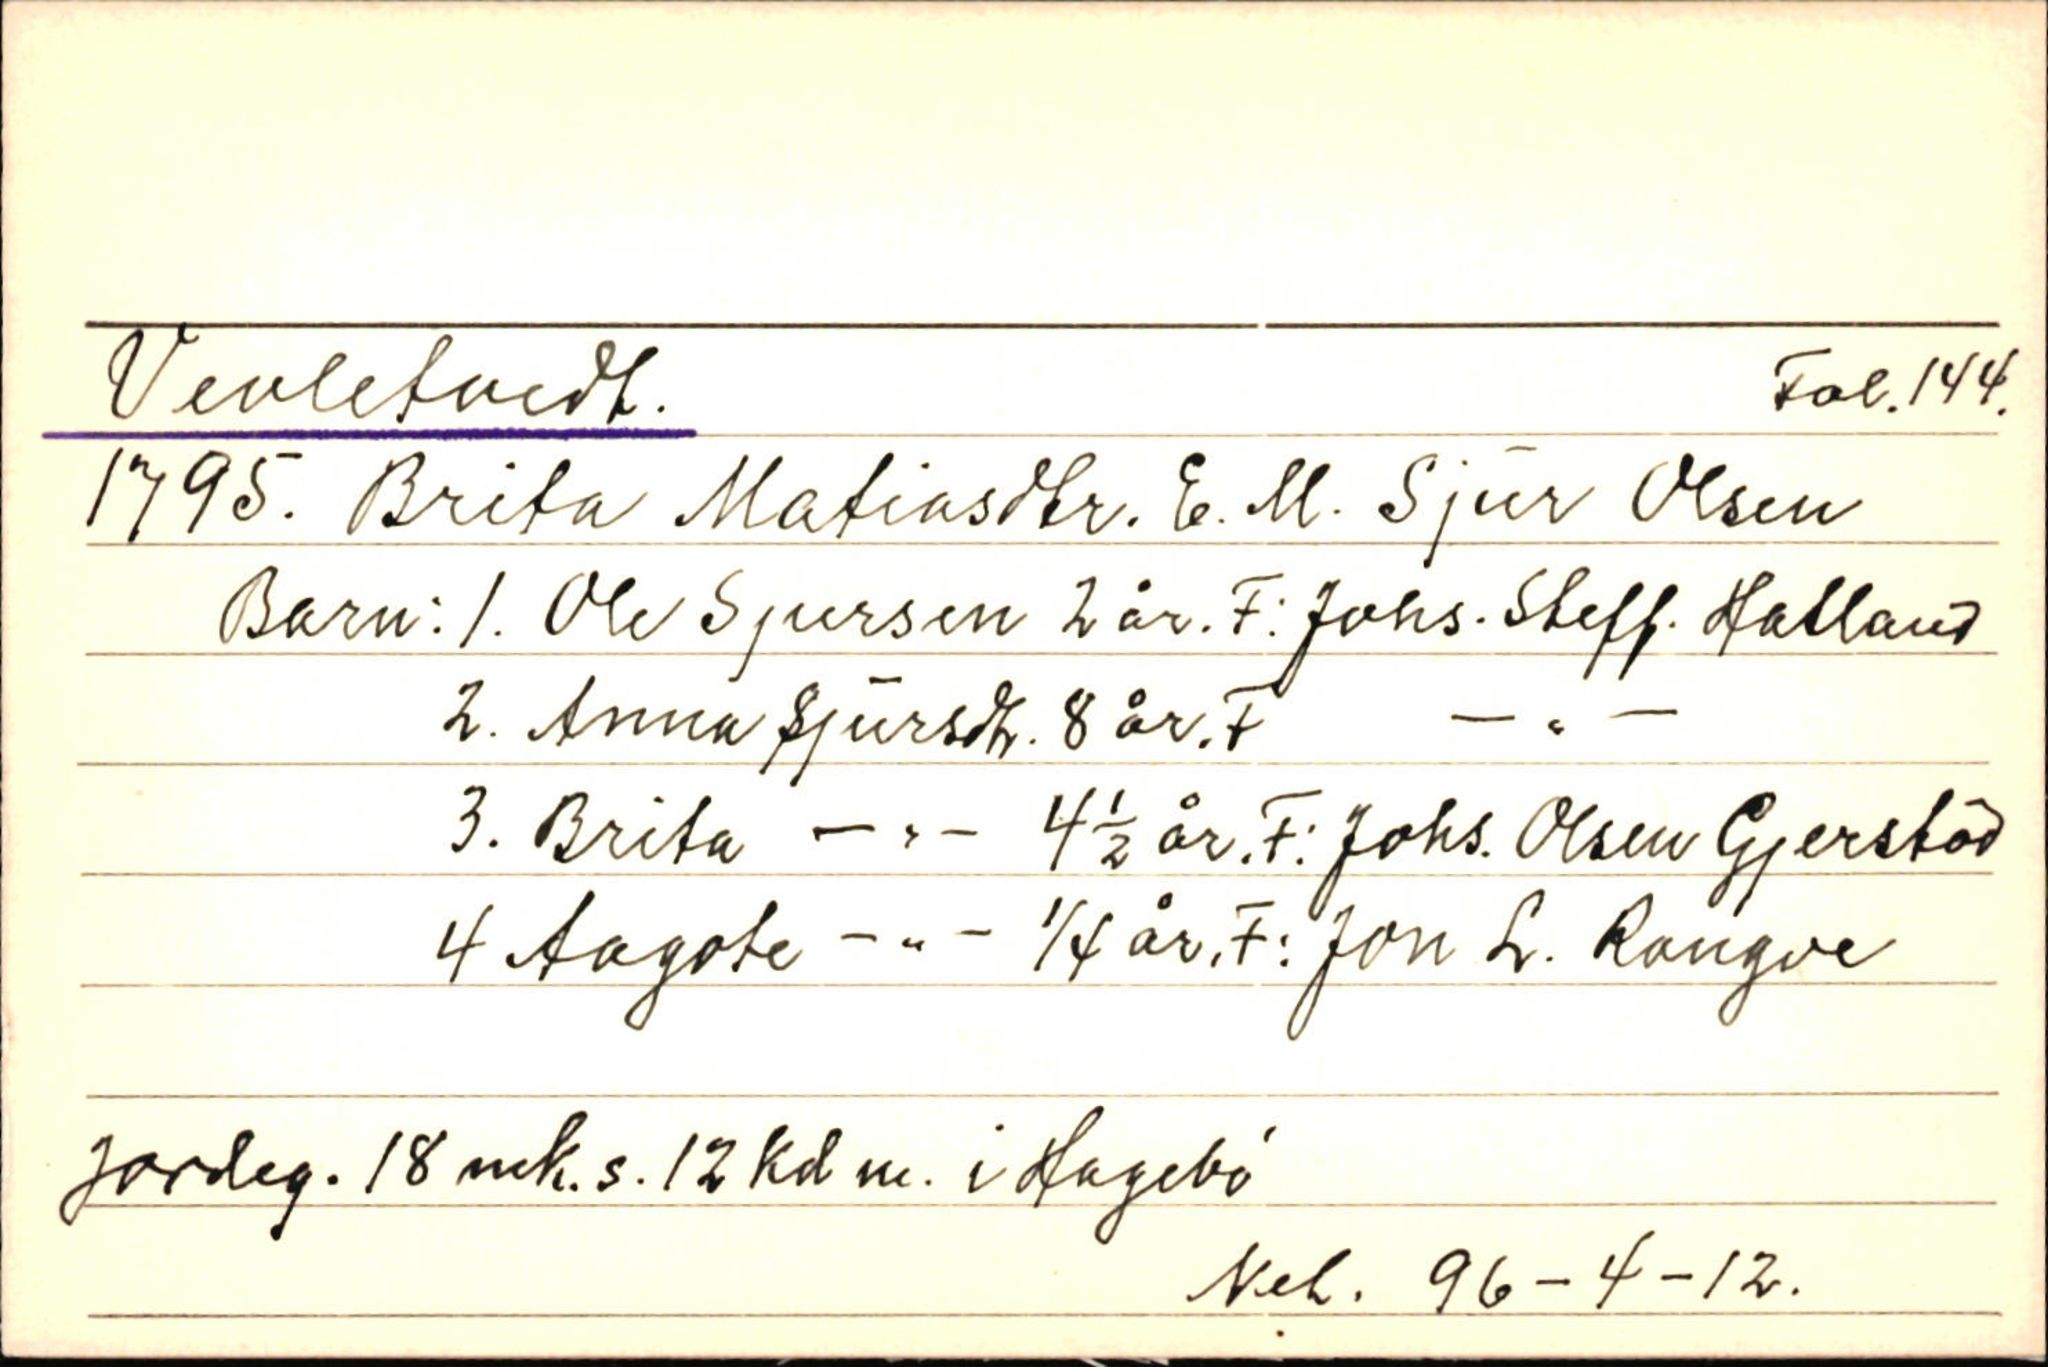 Vevletvedt. Fol. 144.
1795. Brita Matiasdtr. E. M. Sjūr Olsen
Barn: 1. Ole Sjursen 2 år. F: Johs. Steff. Hatland
2. Anna Sjūrsdtr. 8 år. F — " —
3. Brita — " — 4 1/2 år. F: Johs. Olsen Gjerstad
4 Aagote — " — 1/4 år. F: Jon L. Rongve
Jordeg. 18 mk. s. 12 Kd m. i Hagebö
Net. 96 - 4 - 12.